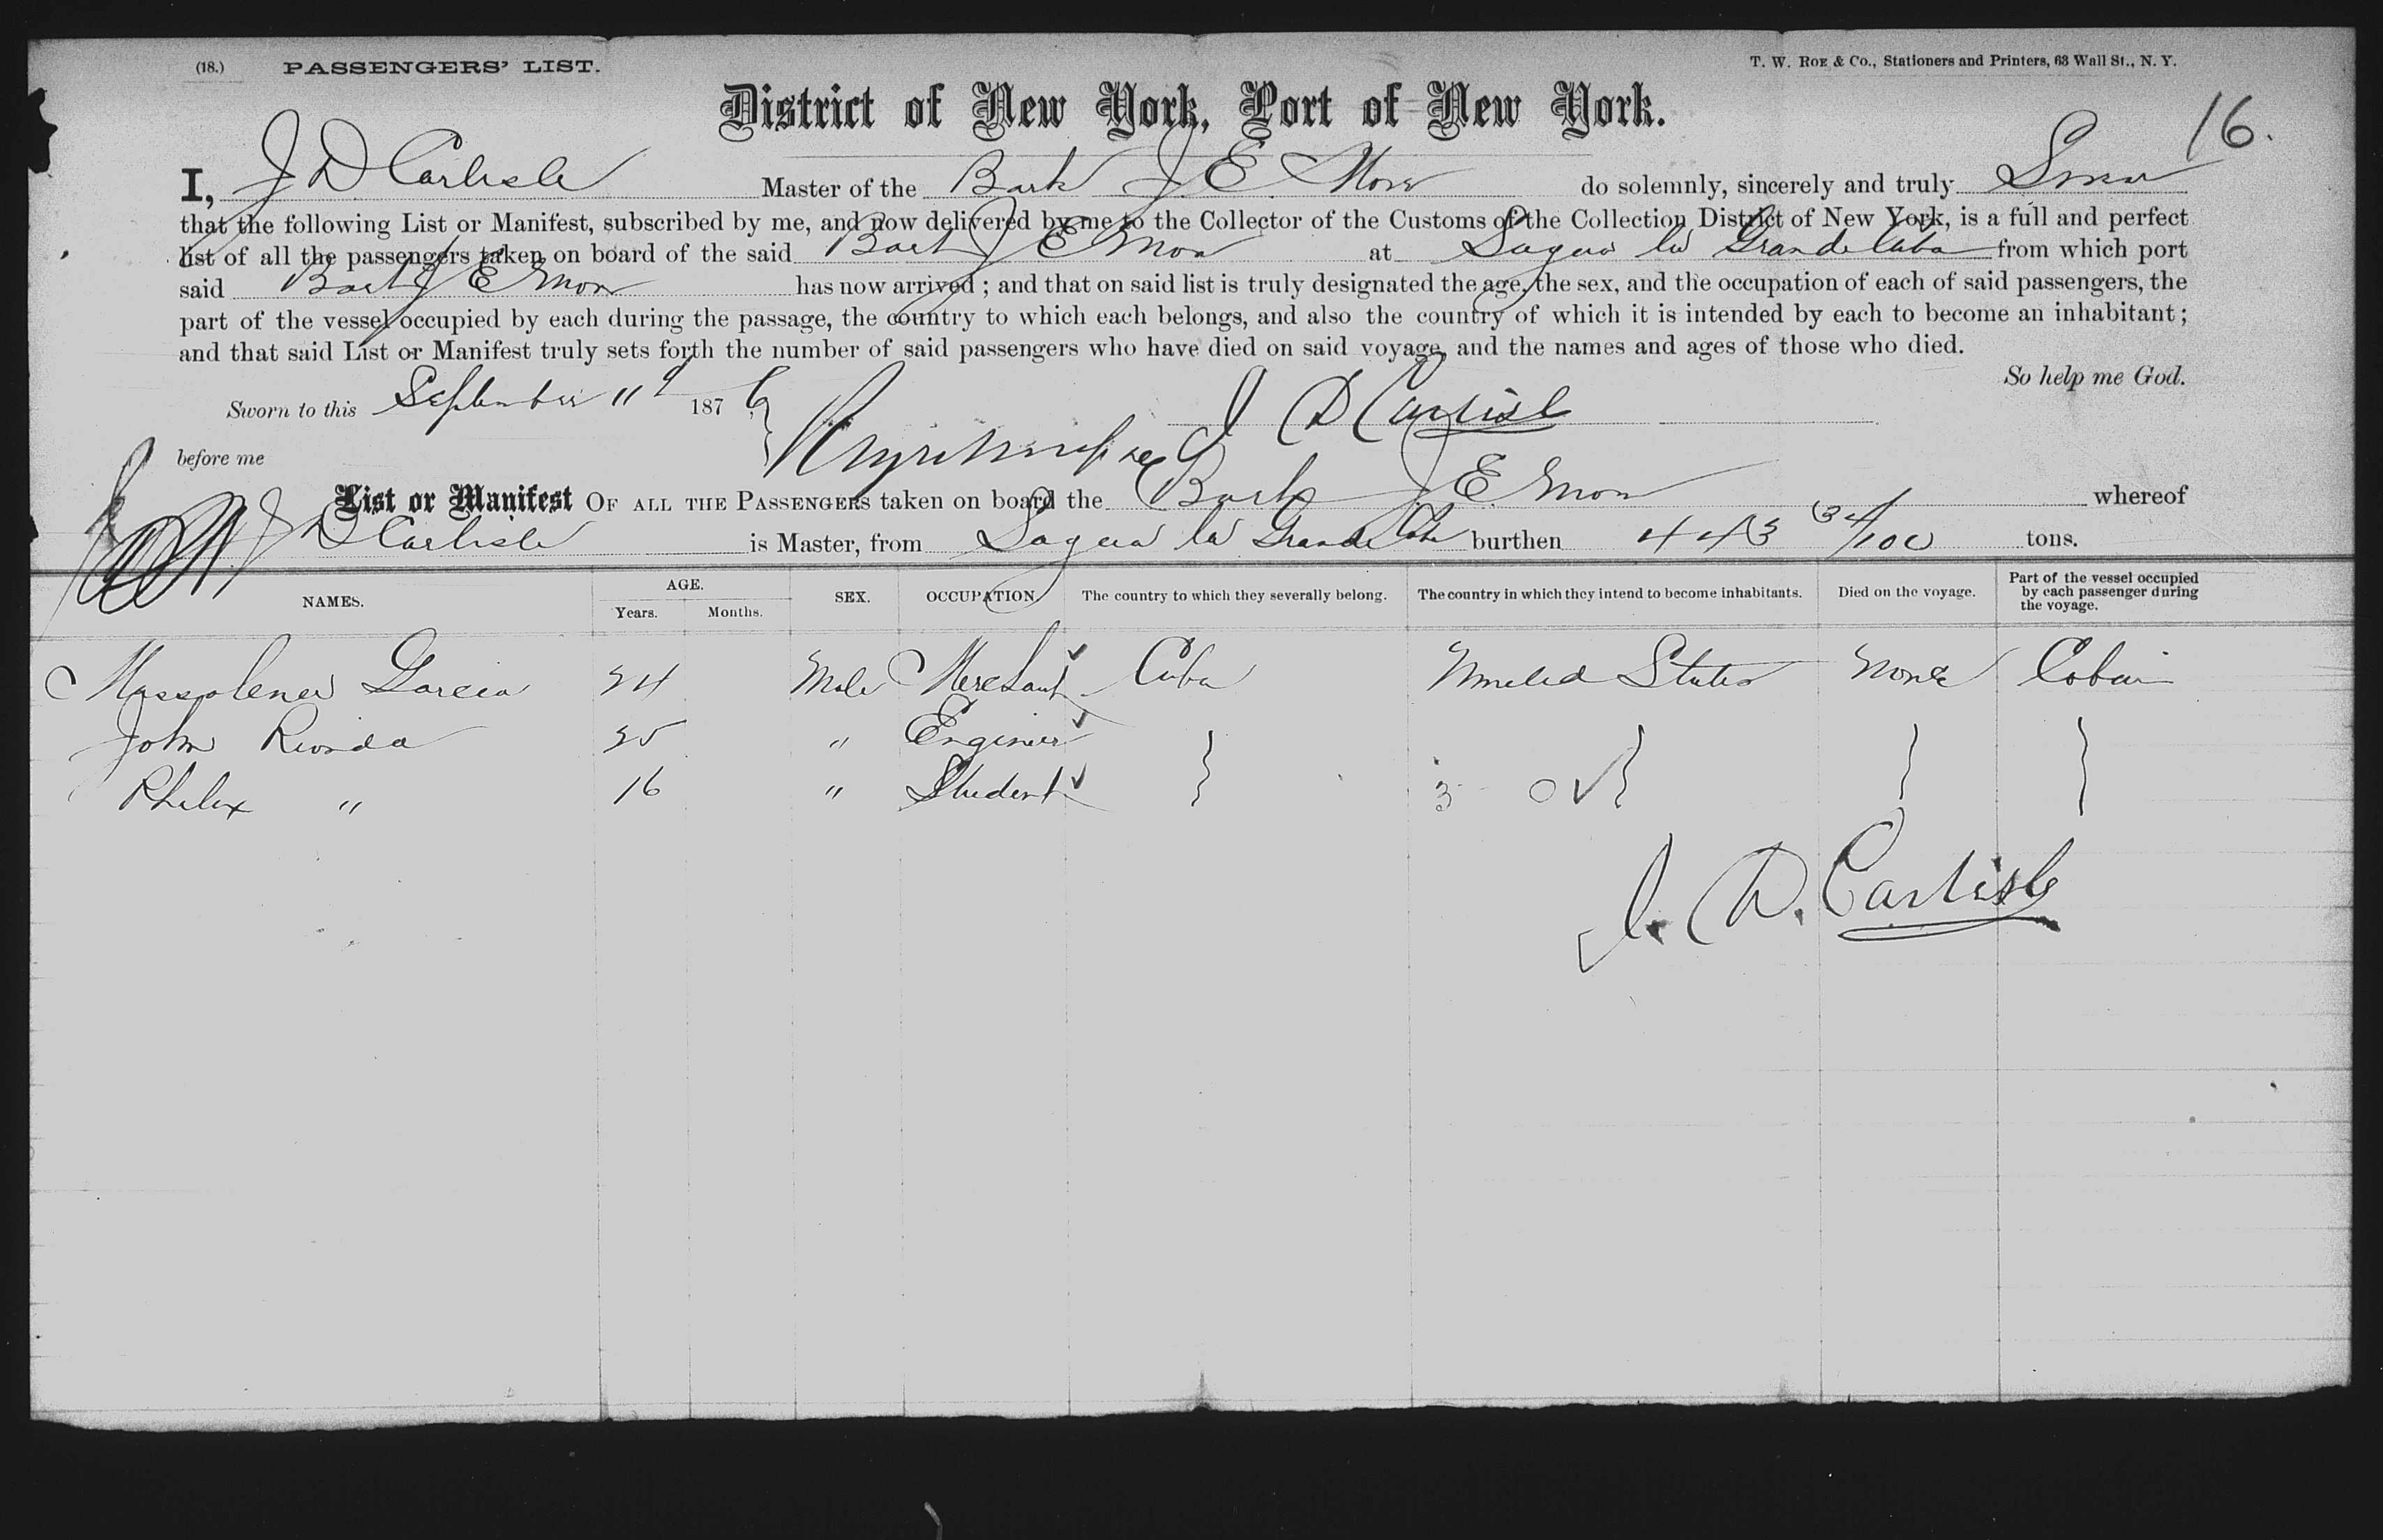 (18.) PASSENGERS' LIST. T. W. ROE & Co., Stationers and Printers, 63 Wall St., N. Y.
District of New York, Port of New York.
16.
I, J D Carlisle Master of the Bark J. E. do solemnly, sincerely and truly Swear
that the following List or Manifest, subscribed by me, and now delivered by me to the Collector of the Customs of the Collection District of New York, is a full and perfect
list of all the passengers taken on board of the said Bark J E at Sagua la Grande Cuba from which port
said Bark J E has now arrived; and that on said list is truly designated the age, the sex, and the occupation of each of said passengers, the
part of the vessel occupied by each during the passage, the country to which each belongs, and also the country of which it is intended by each to become an inhabitant;
and that said List or Manifest truly sets forth the number of said passengers who have died on said voyage, and the names and ages of those who died.
So help me God.
Sworn to this September 11 1876 J D Carlisle
before me
List or Manifest OF ALL THE PASSENGERS taken on board the Bark J E whereof
J D Carlisle is Master, from Sagua la Grande Cuba burthen 443 34/100 tons.
NAMES. AGE. Years. Months. SEX. OCCUPATION The country to which they severally belong. The country in which they intend to become inhabitants. Died on the voyage. Part of the vessel occupied by each passenger during the voyage.
Garcia Male Merchant Cuba United States None Cabin
John Rionda " Engineer
Phelix " 16 " Student
J. D. Carlisle